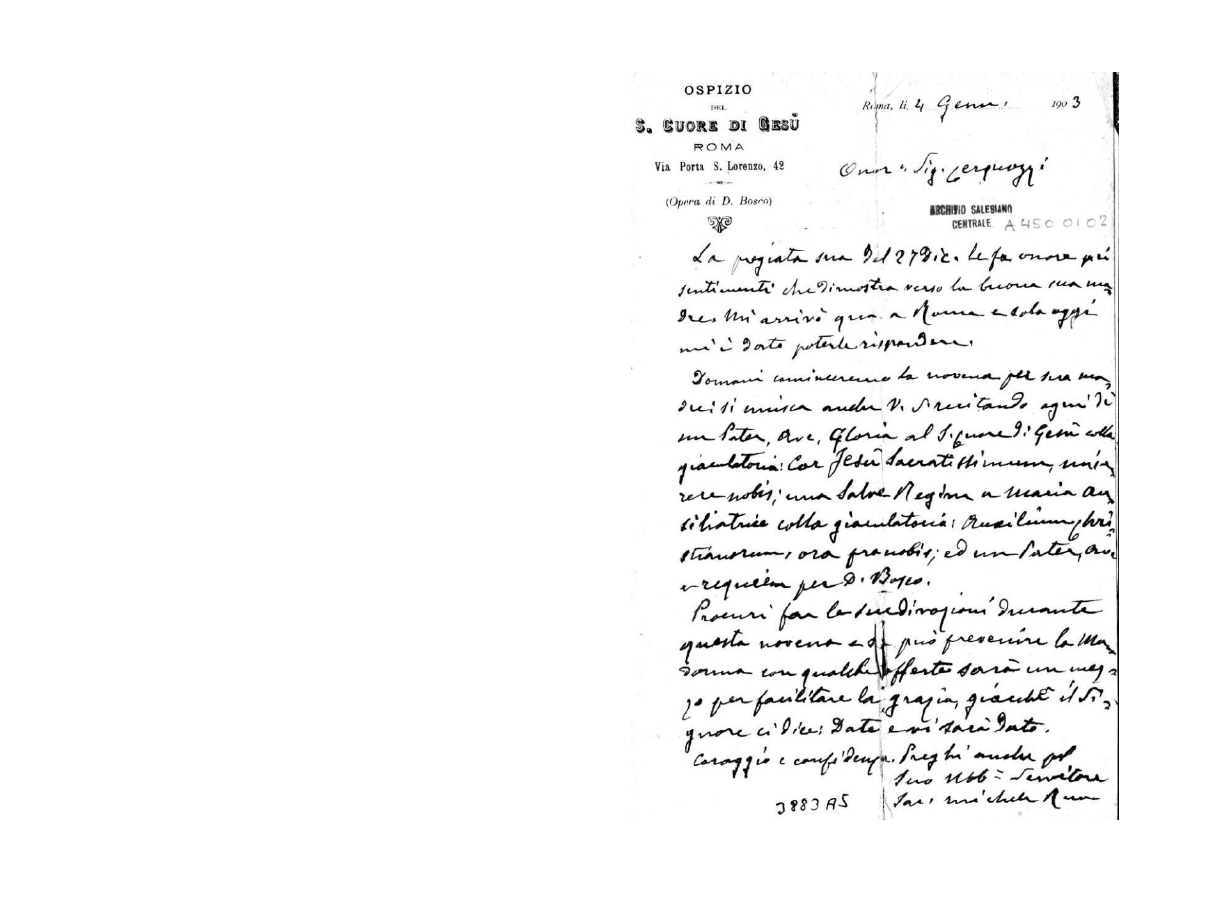 OSPIZIO
DEL
S. CUORE DI GESÙ
ROMA
Via Porta S. Lorenzo, 42
(Opera di D. Bosco)
Roma, li 4 Genn. 1903
Onor. Sig. Cerquozzi
ARCHIVIO SALESIANO
CENTRALE A 450 01 02
La pregiata sua del 27 Dic. le fa onore pei
sentimenti che dimostra verso la buona sua ma
dre. Mi arrivò qua a Roma e solo oggi
mi è dato poterle rispondere.
Domani cominceremo la novena per sua ma
dre: si unisca anche V. S. recitando ogni dì
un Pater, Ave, Gloria al S. Cuore di Gesù colla
giaculatoria: Cor Jesu Sacratissimum, mise
rere nobis; una Salve Regina a Maria Au
siliatrice colla giaculatoria: Auxilium Chri
stianorum, ora pro nobis; ed un Pater, Ave
e requiem per D. Bosco.
Procuri far le sue divozioni durante
questa novena e se può prevenire la Ma
donna con qualche offerta sarà un mez=
zo per facilitare la grazia, giacchè il Si=
gnore ci dice: Date e vi sarà dato.
Coraggio e confidenza. Preghi anche pel
Suo Obb= Servitore
Sac. Michele Rua
3883 A5